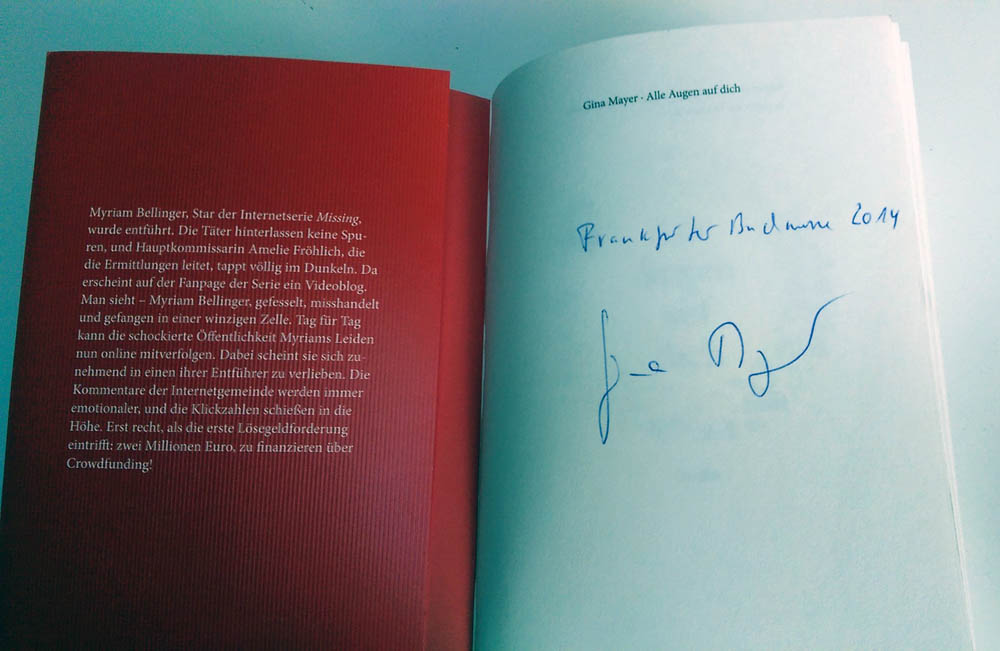 Myriam Bellinger, Star der Internetserie Missing,
wurde entführt. Die Täter hinterlassen keine Spu-
ren, und Hauptkommissarin Amelie Fröhlich, die
die Ermittlungen leitet, tappt völlig im Dunkeln. Da
erscheint auf der Fanpage der Serie ein Videoblog.
Man sieht – Myriam Bellinger, gefesselt, misshandelt
und gefangen in einer winzigen Zelle. Tag für Tag
kann die schockierte Öffentlichkeit Myriams Leiden
nun online mitverfolgen. Dabei scheint sie sich zu-
nehmend in einen ihrer Entführer zu verlieben. Die
Kommentare der Internetgemeinde werden immer
emotionaler, und die Klickzahlen schießen in die
Höhe. Erst recht, als die erste Lösegeldforderung
eintrifft: zwei Millionen Euro, zu finanzieren über
Crowdfunding!
Gina Mayer · Alle Augen auf dich
Frankfurter Buchmesse 2014
Gina Mayer